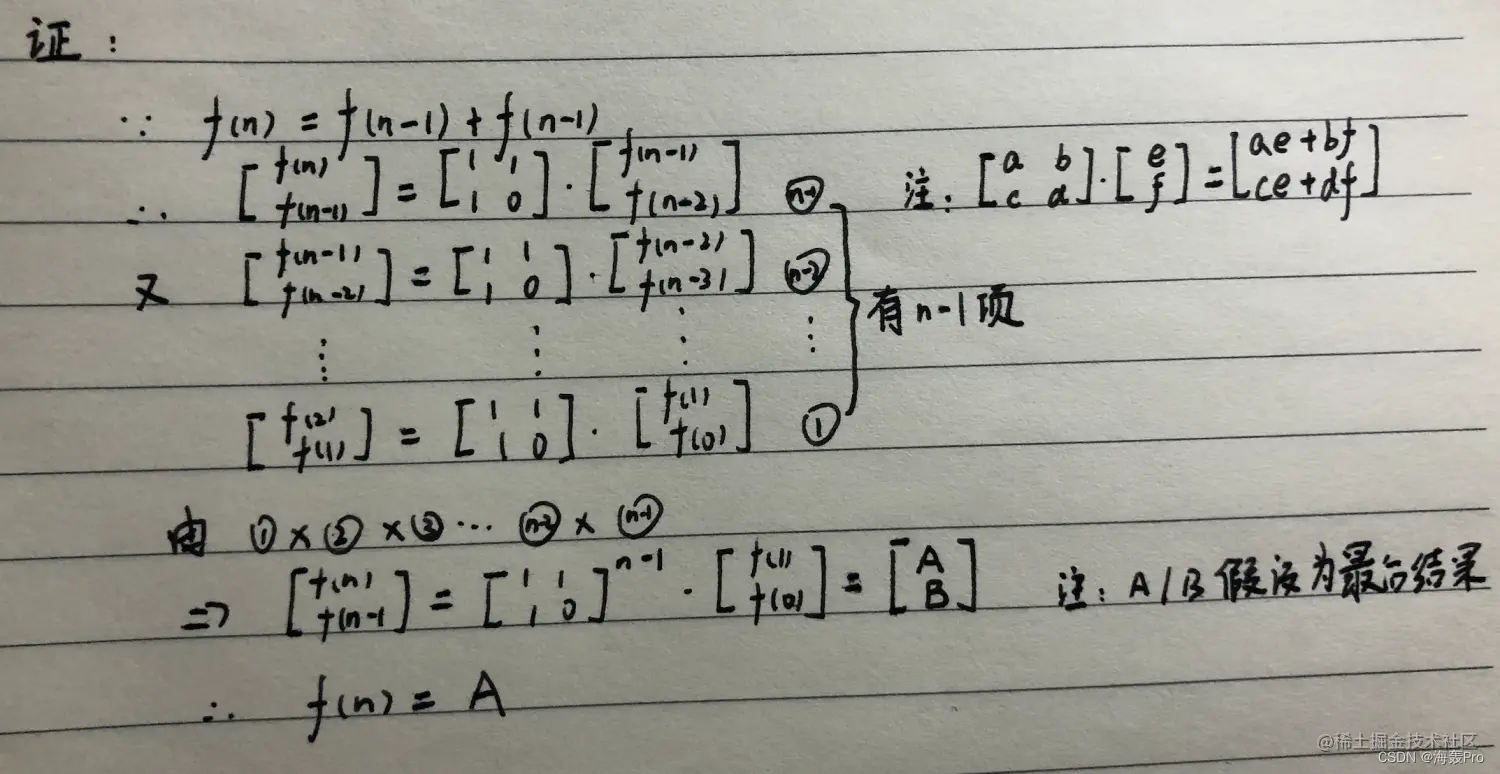 证：
∵ f(n) = f(n-1) + f(n-1)
∴ [f(n) f(n-1)] = [1 1 1 0] · [f(n-1) f(n-2)] (n-1) 注：[a b c d]·[e f] = [ae+bf ce+df]
又 [f(n-1) f(n-2)] = [1 1 1 0] · [f(n-2) f(n-3)] (n-2)
有n-1项
⋮ ⋮ ⋮ ⋮
[f(2) f(1)] = [1 1 1 0] · [f(1) f(0)] ①
由 ① × ② × ③ ··· (n-2) × (n-1)
=> [f(n) f(n-1] = [1 1 1 0]^n-1 · [f(1) f(0)] = [A B] 注：A/B 假设为最后结果
∴ f(n) = A
@稀土掘金技术社区
CSDN @海轰Pro